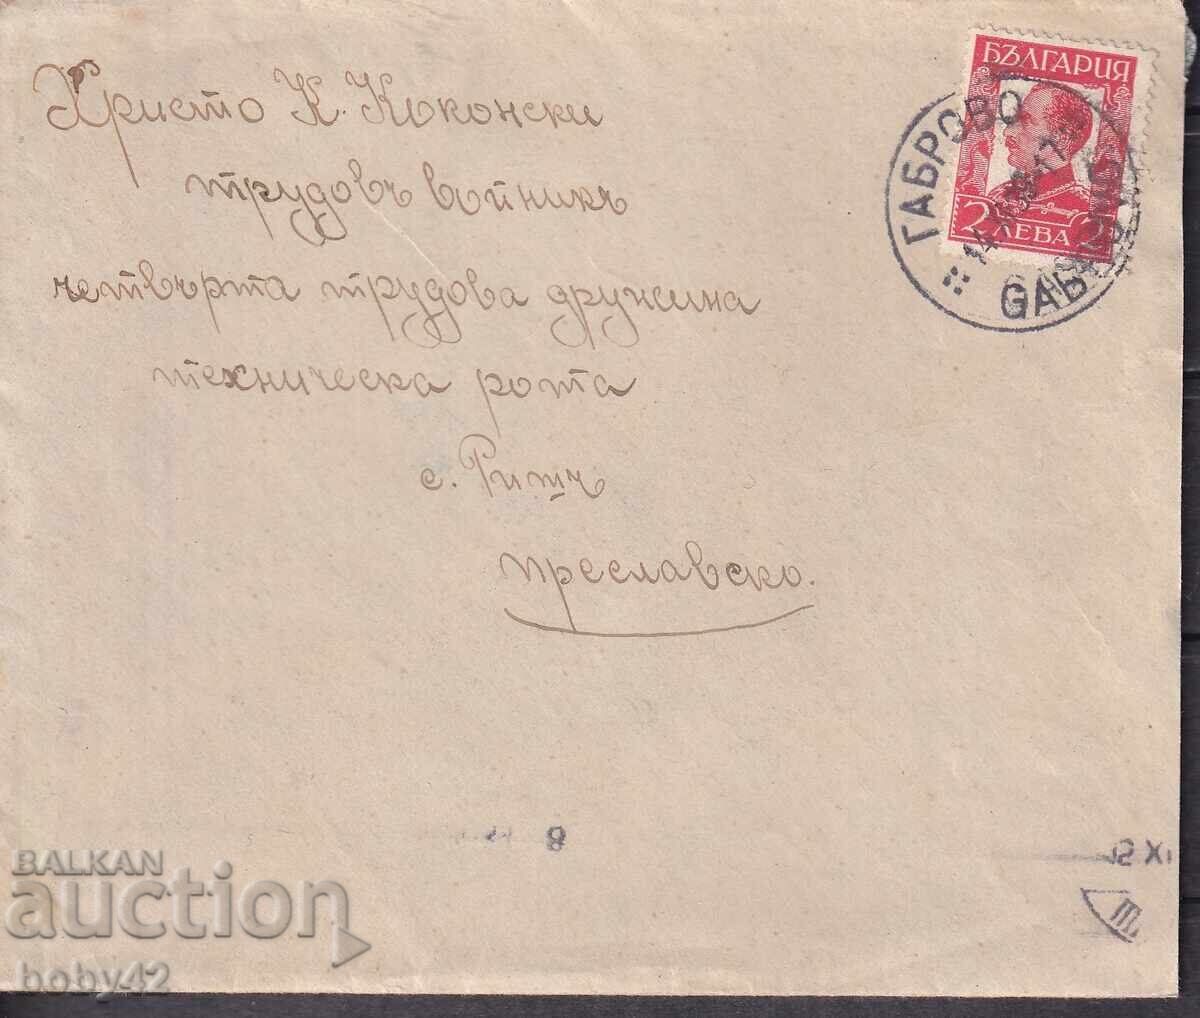 БЪЛГАРИЯ
2 ЛЕВА 2
ГАБРОВО
GAB
Христо К. Коконски
трудовъ войникъ
четвърта трудова дружина
техническа рота
с. Ришъ
преславско.
BALKAN
auction
boby42